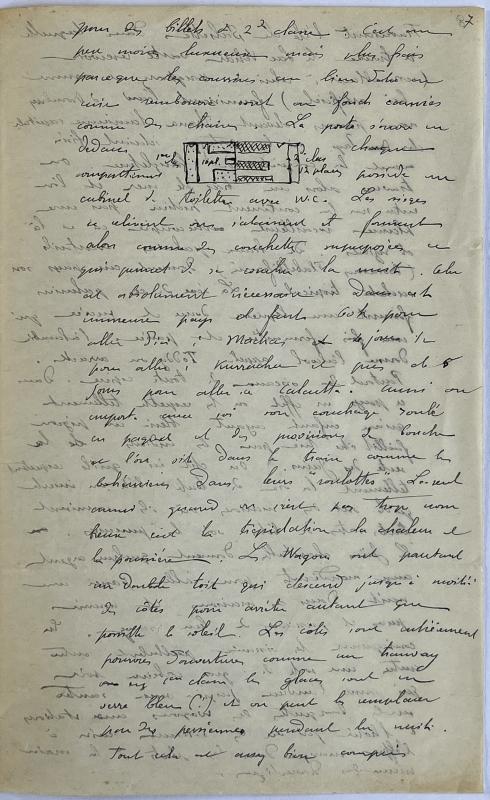 7
pour des billets de 2e classe. C'est un
peu moins luxueux mais plus frais
parce que les coussins au lieu d'être en
cuir rembourré sont à fonds cannés
comme des chaises. La porte s'ouvre en
dedans chaque
1ere cl. 10 pl. 2e clas 12 places
compartiment possède un
cabinet de toilette avec W.C. Les sièges
se relèvent et forment
alors comme des couchettes superposées ce
qui permet de se coucher la nuit. Cela
est absolument nécessaire dans cet
immense pays il faut pour
aller à et jours
pour aller à Kurrachee et près de 5
jours pour aller à Calcutta. aussi on
emporte avec soi son couchage roulé
en paquet et des provisions de bouche
et l'on vit dans le train comme les
bohémiens dans leurs "roulottes". Le seul
ennui quand on n'est pas trop nom
breux est la trépidation la chaleur et
la poussière. Les Wagons ont pourtant
un double toit qui descend jusqu'à moitié
des côtés pour arrêter autant que
possible le soleil. Les côtés sont entièrement
pourvus d'ouvertures comme un tramway
les glaces sont en
verre bleu (!) et on peut les remplacer
par des persiennes pendant la nuit.
Tout cela est assez bien compris